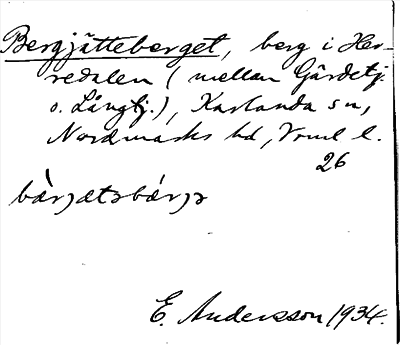 Bergjätteberget, berg i Her-
redalen (mellan Gärdetj.
o. Långtj.), Karlanda sn,
Nordmarks hd, Vrml l.
26
bær̀jætəbǽrjə
E. Andersson 1934.